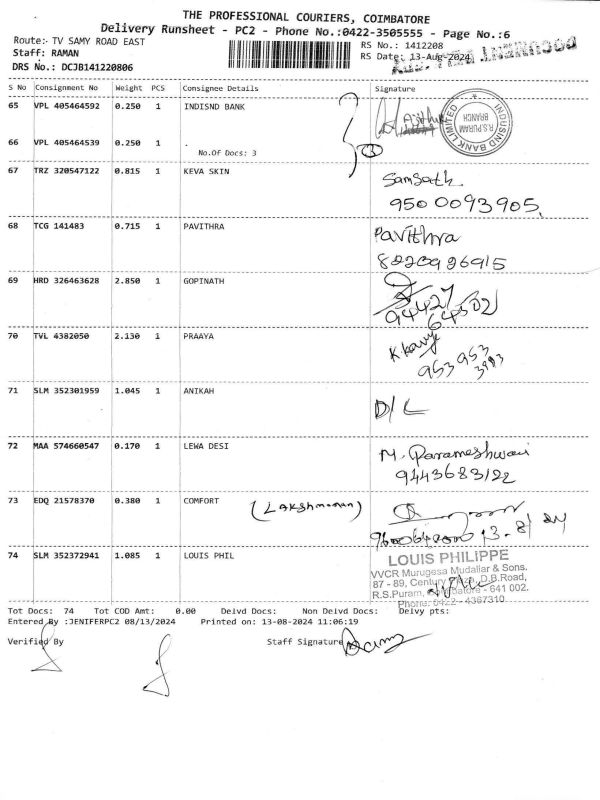 THE PROFESSIONAL COURIERS, COIMBATORE
Delivery Runsheet - PC2 - Phone No.:0422-3505555 - Page No.:6
Route:- TV SAMY ROAD EAST
RS No.: 1412208
Staff: RAMAN
RS Date: 13-Aug-2024
DRS No.: DCJB141220806
S No Consignment No Weight PCS Consignee Details Signature
65 VPL 405464592 0.250 1 INDISND BANK
INDUSIND BANK LIMITED
R.S.PURAM
BRANCH
66 VPL 405464539 0.250 1 .
No.Of Docs: 3
3
67 TRZ 320547122 0.815 1 KEVA SKIN
Samsath
9500093905.
68 TCG 141483 0.715 1 PAVITHRA
Pavithra
8220926915
69 HRD 326463628 2.850 1 GOPINATH
94427
64502
70 TVL 4382050 2.130 1 PRAAYA
953953
3993
71 SLM 352301959 1.045 1 ANIKAH
D/L
72 MAA 574660547 0.170 1 LEWA DESI
M. Parameshwari
9443683122
73 EDQ 21578370 0.380 1 COMFORT (Lakshmanan)
13-8/24
74 SLM 352372941 1.085 1 LOUIS PHIL
LOUIS PHILIPPE
VVCR Murugesa Mudaliar & Sons.
87 - 89, Century Plaza, D.B.Road,
R.S.Puram, Coimbatore - 641 002.
Phone: 0422 - 4367310
Tot Docs: 74 Tot COD Amt: 0.00 Deivd Docs: Non Deivd Docs: Deivy pts:
Entered By :JENIFERPC2 08/13/2024 Printed on: 13-08-2024 11:06:19
Verified By Staff Signature